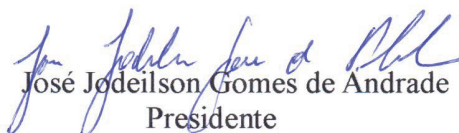 José Jodeilson Gomes de Andrade
Presidente